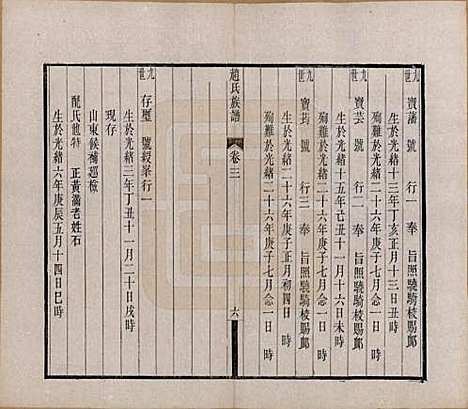 九世
寶藩 號 行一 奉 旨照驍騎校賜卹
生於光緒十三年丁亥正月十三日丑時
殉難於光緒二十六年庚子七月念一日 時
寶芸 號 行二 奉 旨照驍騎校賜卹
生於光緒十五年己丑十一月十六日未時
殉難於光緒二十六年庚子七月念一日 時
九世
寶筠 號 行三 奉 旨照驍騎校賜卹
生於光緒二十六年庚子正月初四日 時
殉難於光緒二十六年庚子七月念一日 時
趙氏族譜 卷三 六
九世
存璽 號綬峯行一
生於光緒三年丁丑十一月二十日戌時
現存
山東候補巡檢
配氏 正黃滿老姓石
生於光緒六年庚辰五月十四日巳時